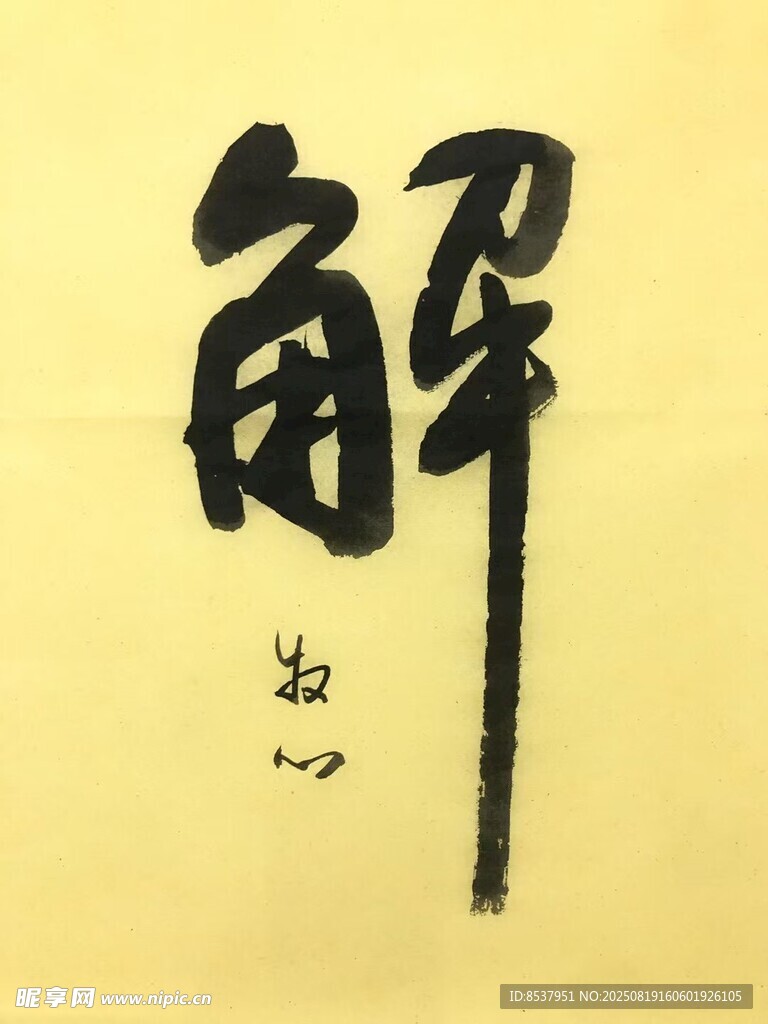 解
牧心
昵享网 www.nipic.cn
ID:8537951 NO:20250819160601926105